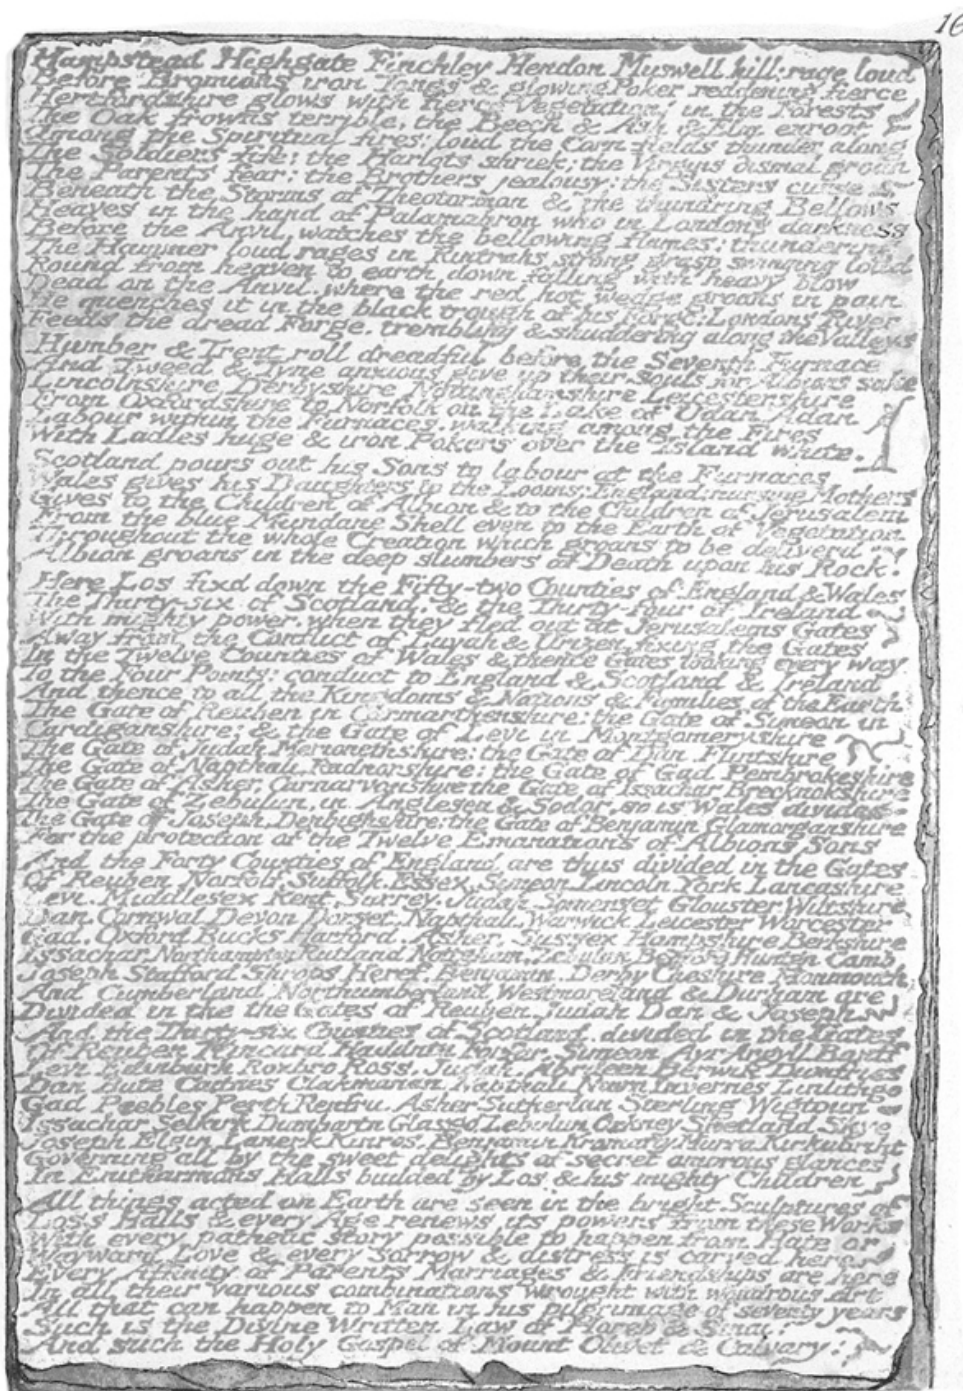 16
Hampstead Highgate Finchley Hendon Muswell hill: rage loud
Before Bromions iron Tongs & glowing Poker reddening fierce
Hertfordshire glows with fierce Vegetation! in the Forests
The Oak frowns terrible, the Beech & Ash & Elm enroot
Among the Spiritual fires; loud the Corn fields thunder along
The Soldiers fife; the Harlots shriek; the Virgins dismal groan
The Parents fear: the Brothers jealousy: the Sisters curse
Beneath the Storms of Theotormon & the thundring Bellows
Heaves in the hand of Palamabron who in Londons darkness
Before the Anvil, watches the bellowing flames: thundering
The Hammer loud rages in Rintrahs strong grasp swinging loud
Round from heaven to earth down falling with heavy blow
Dead on the Anvil, where the red hot wedge groans in pain
He quenches it in the black trough of his Forge; Londons River
Feeds the dread Forge, trembling & shuddering along the Valleys
Humber & Trent roll dreadful before the Seventh Furnace
And Tweed & Tyne anxious give up their Souls for Albions sake
Lincolnshire Derbyshire Nottinghamshire Leicestershire
From Oxfordshire to Norfolk on the Lake of Udan Adan
Labour within the Furnaces, walking among the Fires
With Ladles huge & iron Pokers over the Island white.
Scotland pours out his Sons to labour at the Furnaces
Wales gives his Daughters to the Looms; England: nursing Mothers
Gives to the Children of Albion & to the Children of Jerusalem
From the blue Mundane Shell even to the Earth of Vegetation
Throughout the whole Creation which groans to be deliverd
Albion groans in the deep slumbers of Death upon his Rock.
Here Los fixd down the Fifty-two Counties of England & Wales
The Thirty-six of Scotland, & the Thirty-four of Ireland
With mighty power, when they fled out at Jerusalems Gates
Away from the Conflict of Luvah & Urizen, fixing the Gates
In the Twelve Counties of Wales & thence Gates looking every way
To the Four Points: conduct to England & Scotland & Ireland
And thence to all the Kingdoms & Nations & Families of the Earth
The Gate of Reuben in Carmarthenshire: the Gate of Simeon in
Cardiganshire; & the Gate of Levi in Montgomeryshire
The Gate of Judah Merionethshire: the Gate of Dan Flintshire
The Gate of Napthali, Radnorshire: the Gate of Gad Pembrokeshire
The Gate of Asher, Carnarvonshire the Gate of Issachar Brecknokshire
The Gate of Zebulun, in Anglesea & Sodor, so is Wales divided.
The Gate of Joseph, Denbighshire: the Gate of Benjamin Glamorganshire
For the protection of the Twelve Emanations of Albions Sons
And the Forty Counties of England are thus divided in the Gates
Of Reuben Norfolk, Suffolk, Essex, Simeon Lincoln, York Lancashire
Levi. Middlesex Kent Surrey. Judah Somerset Glouster Wiltshire.
Dan. Cornwal Devon Dorset, Napthali, Warwick Leicester Worcester
Gad. Oxford Bucks Harford. Asher, Sussex Hampshire Berkshire
Issachar, Northampton Rutland Nottgham. Zebulun Bedford Huntgn Camb
Joseph Stafford Shrops Heref. Benjamin, Derby Cheshire Monmouth;
And Cumberland Northumberland Westmoreland & Durham are
Divided in the Gates of Reuben, Judah Dan & Joseph
And the Thirty-six Counties of Scotland, divided in the Gates
Of Reuben Kincard Haddntn Forfar, Simeon Ayr Argyll Banff
Levi Edinburh Roxbro Ross. Judah, Abrdeen Berwik Dumfries
Dan Bute Caitnes Clakmanan. Napthali Nairn Invernes Linlithgo
Gad Peebles Perth Renfru. Asher Sutherlan Sterling Wigtoun
Issachar Selkirk Dumbartn Glasgo. Zebulun Orkney Shetland Skye
Joseph Elgin Lanerk Kinros. Benjamin Kromarty Murra Kirkubriht
Governing all by the sweet delights of secret amorous glances
In Enitharmons Halls builded by Los & his mighty Children
All things acted on Earth are seen in the bright Sculptures of
Los's Halls & every Age renews its powers from these Works
With every pathetic story possible to happen from Hate or
Wayward Love & every sorrow & distress is carved here
Every Affinity of Parents Marriages & Friendships are here
In all their various combinations wrought with wondrous Art
All that can happen to Man in his pilgrimage of seventy years
Such is the Divine Written Law of Horeb & Sinai:
And such the Holy Gospel of Mount Olivet & Calvary: